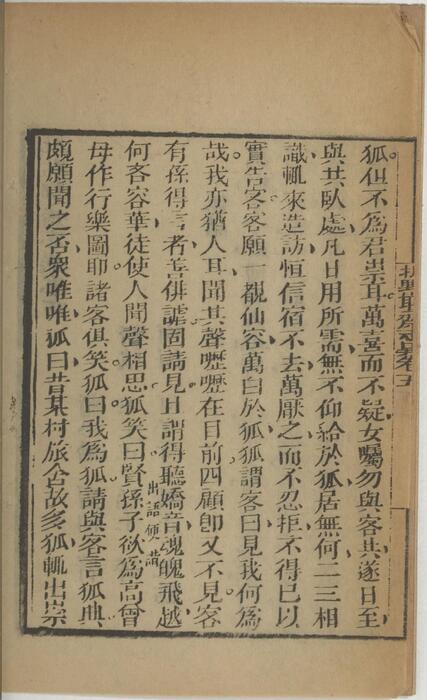 狐但不為君祟耳萬喜而不疑女囑勿與客共遂日至
與共臥處凡日用所需無不仰給於狐居無何二三相
識輒來造訪恒信宿不去萬厭之而不忍拒不得已以
實告客客願一覩仙容萬白於狐狐謂客曰見我何為
哉我亦猶人耳聞其聲嚦嚦在目前四顧卽又不見客
有孫得言者善俳謔固請見且謂得聽嬌音魂魄飛越
出語便諧
何吝容華徒使人聞聲相思狐笑曰賢孫子欲為高曾
母作行樂圖耶諸客俱笑狐曰我為狐請與客言狐典
頗願聞之否衆唯唯狐曰昔某村旅舍故多狐輒出祟